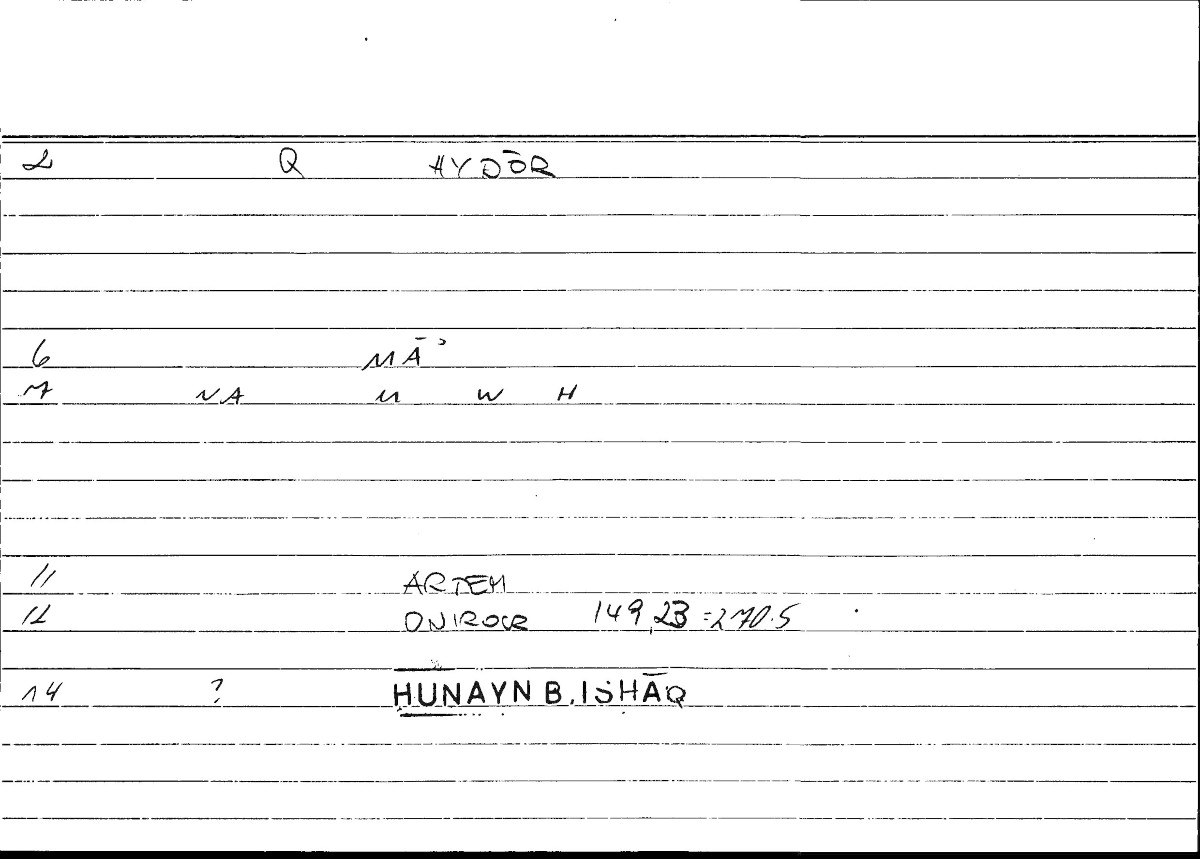 2 Q HYDŌR
6 MĀʾ
7 NA M W H
11 ARTEM
12 ONIROCR 149,23 = 270.5
14 ? ḤUNAYN B. ISḤĀQ